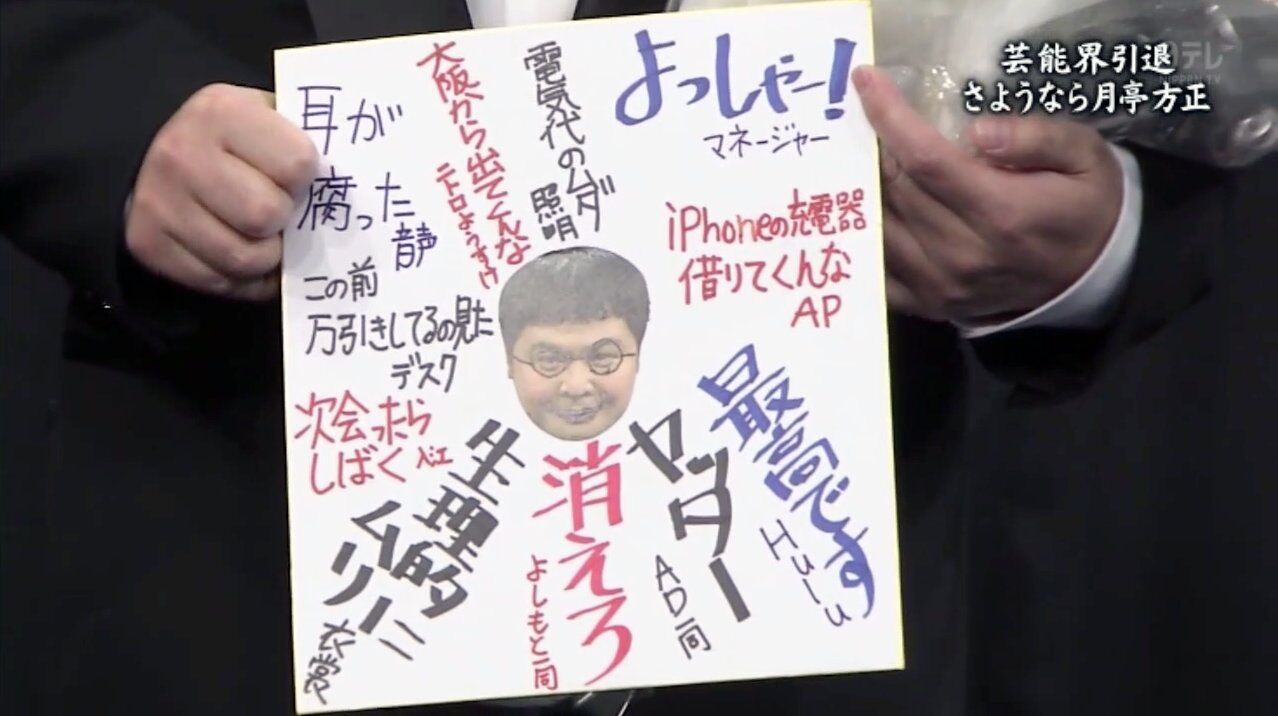 芸能界引退
さようなら月亭方正
日テレ
NIPPON TV
よっしゃー!
マネージャー
電気代のムダ
照明
大阪から出てくんな
ニトロようすけ
耳が
腐った
音声
この前
万引きしてるの見た
デスク
iPhoneの充電器
借りてくんな
AP
次会ったら
しばく 入江
生理的に
ムリー
衣裳
消えろ
よしもと一同
ヤッター
AD一同
最高です
Hulu